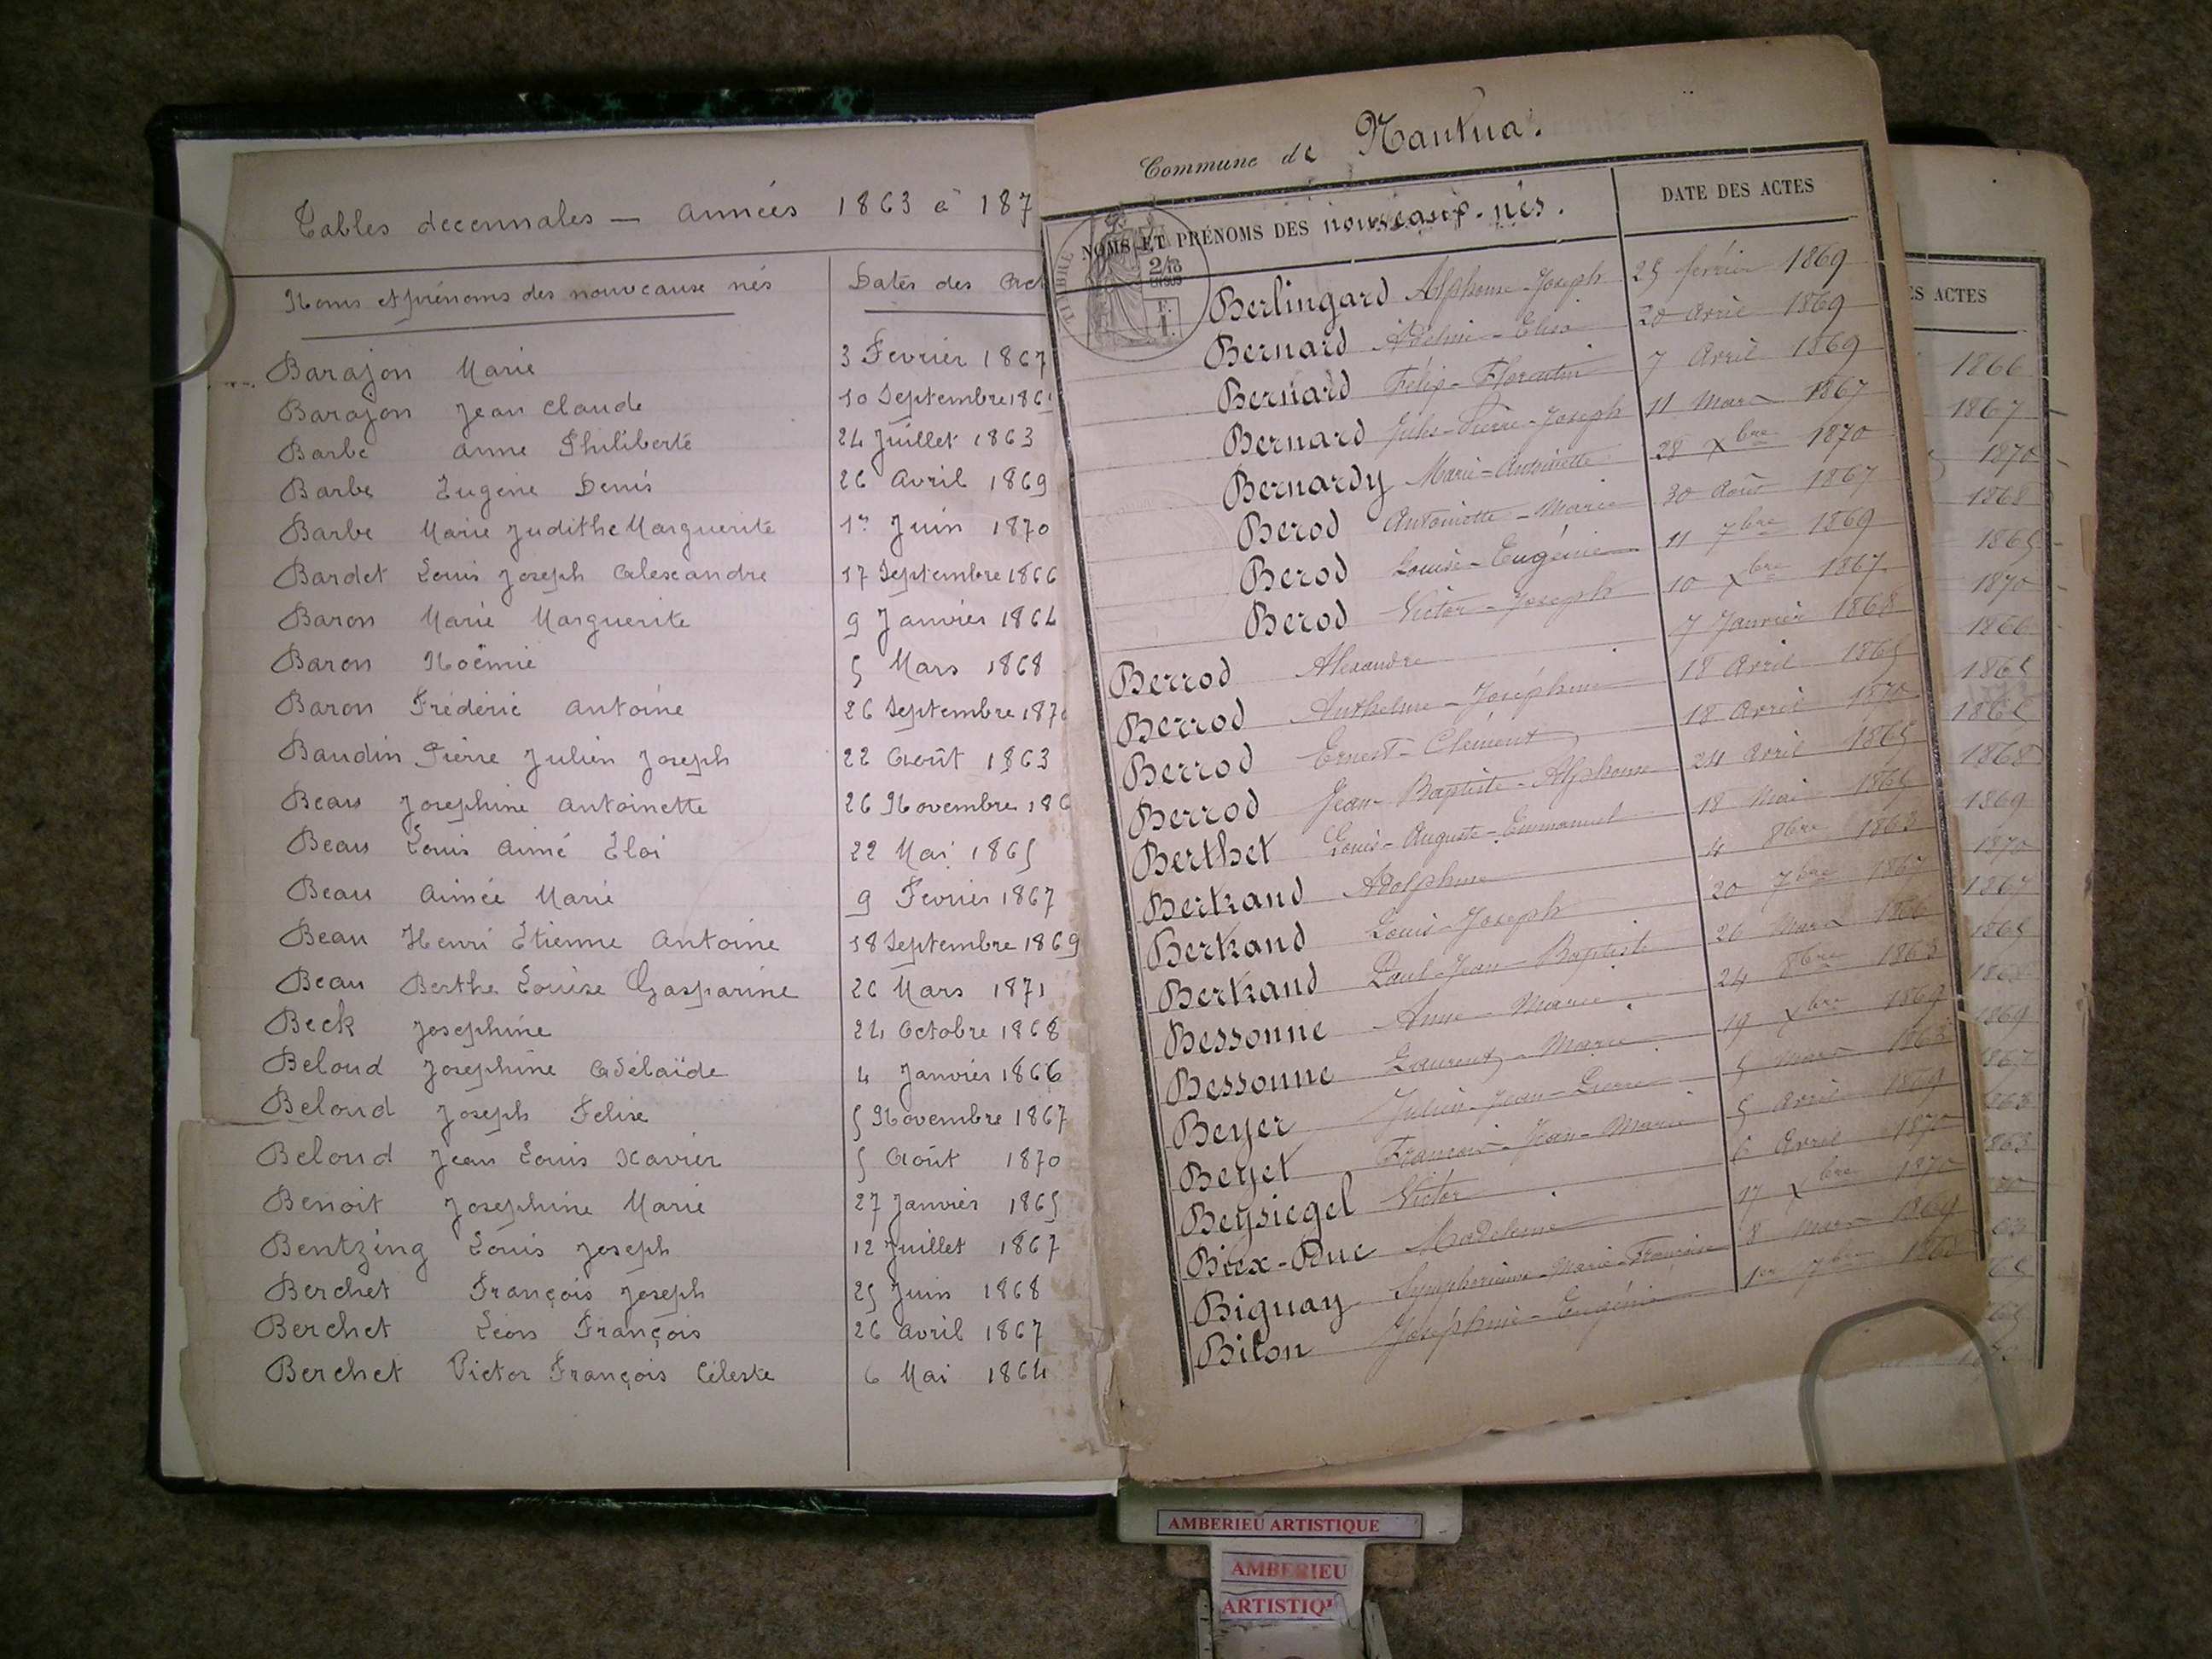 Tables decennales — Années 1863 à 187
Noms et prénoms des nouveaux nés Dates des Act
Barajon Marie 3 Fevrier 1867
Barajon Jean Claude 10 Septembre 186
Barbe Anne Philiberte 24 Juillet 1863
Barbe Eugène Denis 26 Avril 1869
Barbe Marie Judithe Marguerite 1er Juin 1870
Bardet Louis Joseph Alexandre 17 Septembre 1866
Baron Marie Marguerite 9 Janvier 1864
Baron Noëmie 5 Mars 1868
Baron Frédéric Antoine 26 Septembre 187
Baudin Pierre Julien Joseph 22 Août 1863
Beau Josephine Antoinette 26 Novembre 186
Beau Louis Aimé Eloi 22 Mai 1865
Beau Aimée Marie 9 Fevrier 1867
Beau Henri Etienne Antoine 18 Septembre 1869
Beau Berthe Louise Gasparine 26 Mars 1871
Beck Josephine 24 Octobre 1868
Beloud Josephine Adélaïde 4 Janvier 1866
Beloud Joseph Felix 5 Novembre 1867
Beloud Jean Louis Xavier 5 Août 1870
Benoit Josephine Marie 27 Janvier 1865
Bentzing Louis Joseph 12 Juillet 1867
Berchet François Joseph 25 Juin 1868
Berchet Léon François 26 Avril 1867
Berchet Victor François Céleste 6 Mai 1864
Commune de Nantua.
NOMS ET PRÉNOMS DES nouveaux-nés. DATE DES ACTES
Berlingard Alphonse-Joseph 25 février 1869
Bernard Adeline-Elisa 20 avril 1869
Bernard Félix-Florentin 7 Avril 1869
Bernard Jules-Pierre-Joseph 11 Mars 1867
Bernardy Marie-Antoinette 28 Xbre 1870
Berod Antoinette-Marie 30 Août 1867
Berod Louise-Eugénie 11 7bre 1869
Berod Victor-Joseph 10 Xbre 1867
Berrod Alexandre 7 Janvier 1868
Berrod Anthelme-Joséphine 18 Avril 1865
Berrod Ernest-Clément 18 Avril 1870
Berrod Jean-Baptiste-Alphonse 24 Avril 1865
Berthet Louis-Auguste-Emmanuel 18 Mai 1865
Bertrand Adolphine 4 8bre 1863
Bertrand Louis-Joseph 20 7bre 1867
Bertrand Paul-Jean-Baptiste 26 Mars 1866
Bessonne Anne-Marie 24 8bre 1863
Bessonne Laurent-Marie 19 Xbre 1869
Beyer Julien-Jean-Pierre 5 Mars 1863
Beyet François-Jean-Marie 5 Avril 1869
Beysiegel Victor 6 Avril 1870
Biex-Duc Madeleine 17 Xbre 1870
Biguay Symphorienne-Marie-Françoise 8 Mars 1869
Biton Joséphine-Eugénie 1er 7bre
ES ACTES
1866
1867
1870
1868
1865
1870
1866
1865
1868
1869
1870
1867
1865
1869
AMBERIEU ARTISTIQUE
AMBERIEU
ARTISTIQU